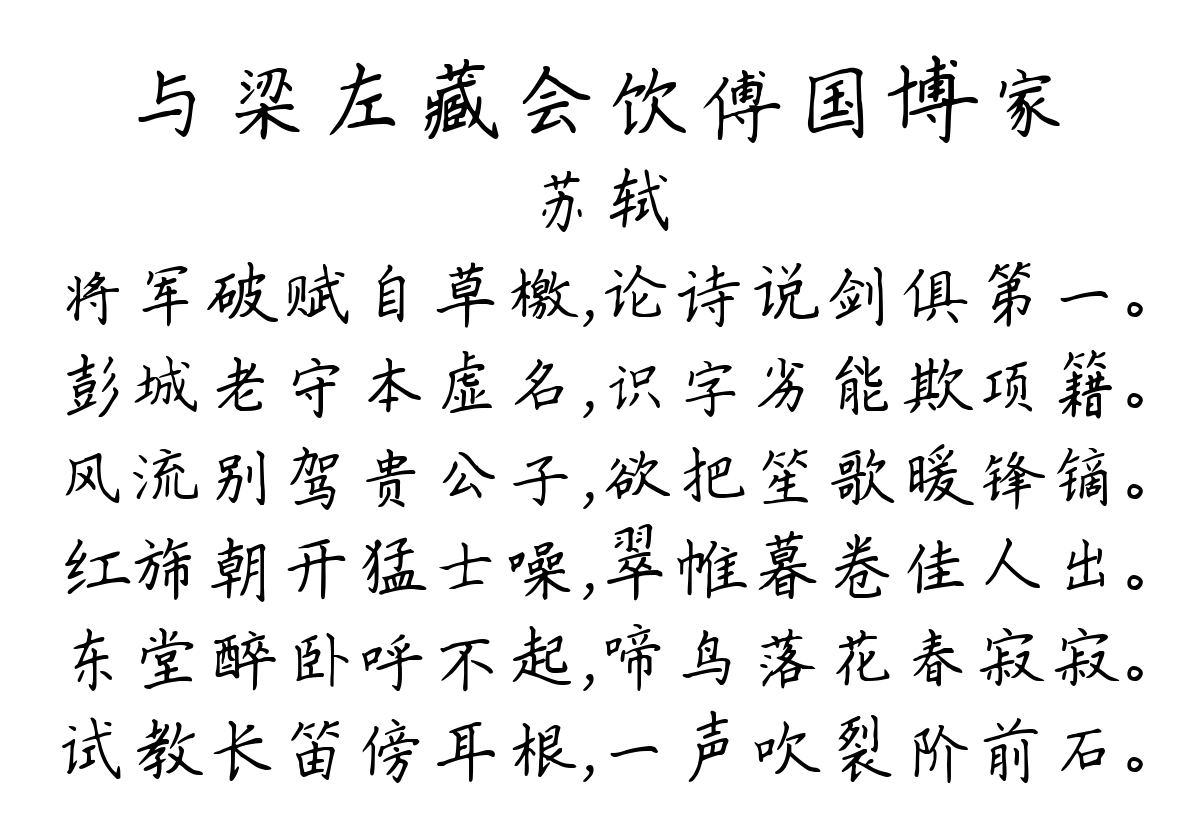 与梁左藏会饮傅国博家
苏轼
将军破赋自草檄,论诗说剑俱第一。
彭城老守本虚名,识字劣能欺项籍。
风流别驾贵公子,欲把笙歌暖锋镝。
红旆朝开猛士噪,翠帷暮卷佳人出。
东堂醉卧呼不起,啼鸟落花春寂寂。
试教长笛傍耳根,一声吹裂阶前石。